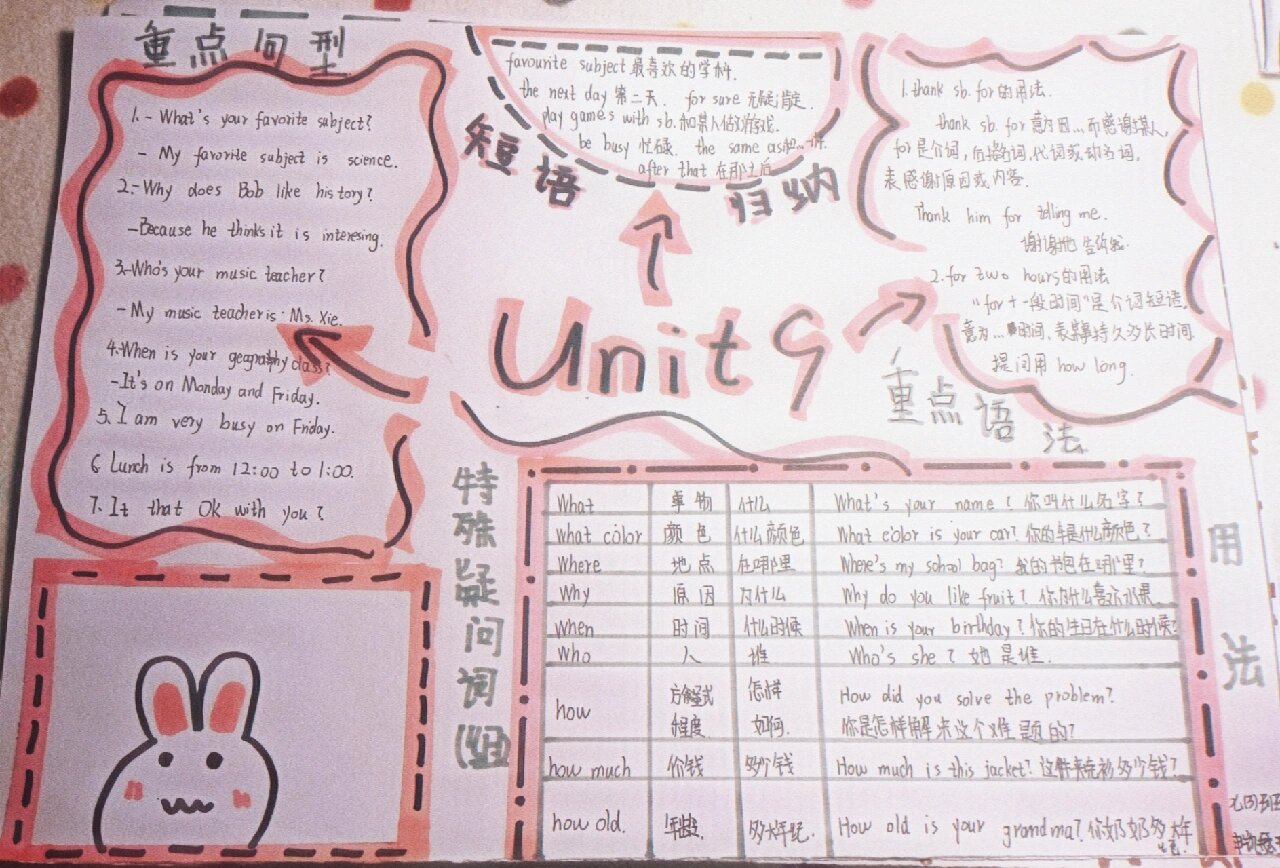 重点句型
1. - What's your favorite subject?
- My favorite subject is science.
2.- Why does Bob like history?
- Because he thinks it is interesing.
3.- Who's your music teacher?
- My music teacher is Ms. Xie.
4.- When is your geography class?
- It's on Monday and Friday.
5. I am very busy on Friday.
6 Lunch is from 12:00 to 1:00.
7. It that OK with you?
favourite subject 最喜欢的学科.
the next day 第二天. for sure 无疑;肯定.
play games with sb. 和某人做游戏.
be busy 忙碌. the same as 和...一样.
after that 在那之后
短语
归纳
Unit 9
1. thank sb. for 的用法.
thank sb. for 意为因...而感谢某人,
for 是介词,后接名词,代词或动名词,
表感谢原因或内容.
Thank him for telling me.
谢谢他告诉我.
2. for two hours 的用法
"for + 一段时间"是介词短语,
意为...时间,表持久多长时间
提问用 how long.
重点语法
特殊疑问词(组)
用法
What 事物 什么 What's your name? 你叫什么名字?
What color 颜色 什么颜色 What color is your car? 你的车是什么颜色?
Where 地点 在哪里 Where's my school bag? 我的书包在哪里?
Why 原因 为什么 Why do you like fruit? 你为什么喜欢水果
When 时间 什么时候 When is your birthday? 你的生日在什么时候?
Who 人 谁 Who's she? 她是谁.
how 方式 怎样 How did you solve the problem?
程度 如何. 你是怎样解决这个难题的?
how much 价钱 多少钱 How much is this jacket? 这件夹克衫多少钱?
how old. 年龄. 多大年纪. How old is your grandma? 你奶奶多大年
纪?
七四班